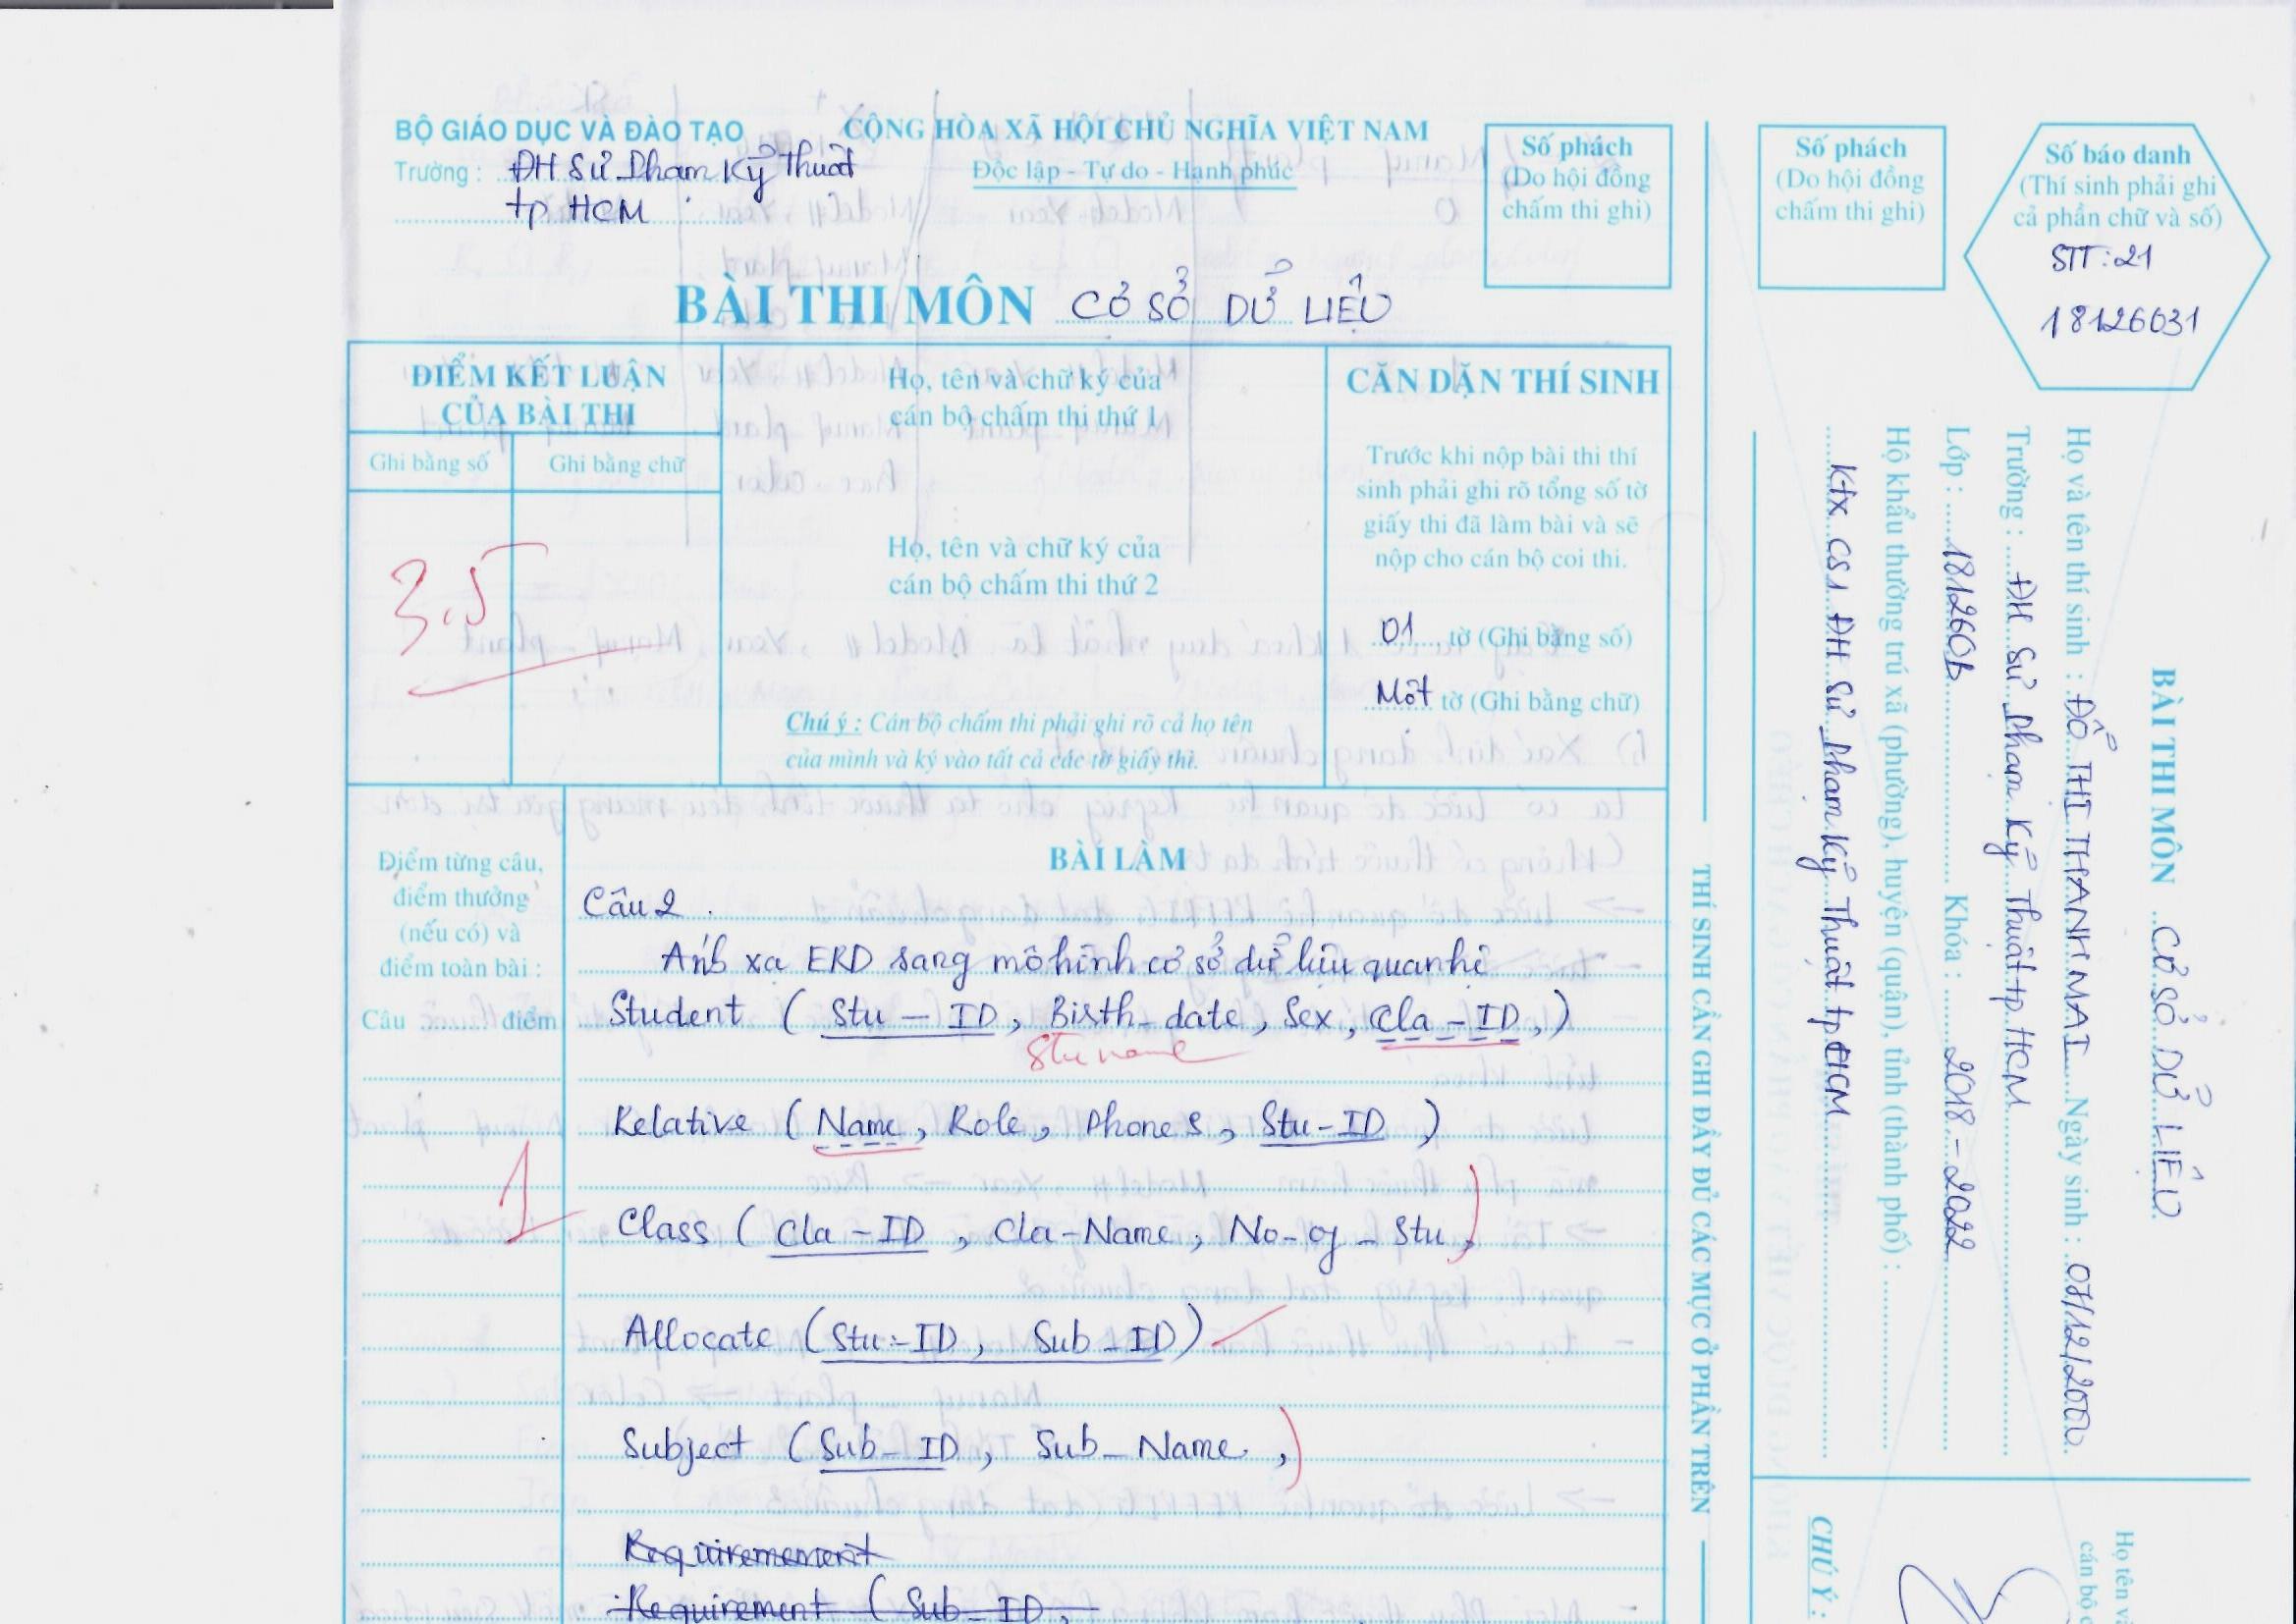 BỘ GIÁO DỤC VÀ ĐÀO TẠO
Trường : ĐH Sư Phạm Kỹ Thuật
tp HCM
CỘNG HÒA XÃ HỘI CHỦ NGHĨA VIỆT NAM
Độc lập - Tự do - Hạnh phúc
Số phách
(Do hội đồng
chấm thi ghi)
BÀI THI MÔN CƠ SỞ DỮ LIỆU
ĐIỂM KẾT LUẬN
CỦA BÀI THI
Ghi bằng số
Ghi bằng chữ
3.5
Họ, tên và chữ ký của
cán bộ chấm thi thứ 1
Họ, tên và chữ ký của
cán bộ chấm thi thứ 2
Chú ý : Cán bộ chấm thi phải ghi rõ cả họ tên
của mình và ký vào tất cả các tờ giấy thi.
CĂN DẶN THÍ SINH
Trước khi nộp bài thi thí
sinh phải ghi rõ tổng số tờ
giấy thi đã làm bài và sẽ
nộp cho cán bộ coi thi.
01 tờ (Ghi bằng số)
Một tờ (Ghi bằng chữ)
Điểm từng câu,
điểm thưởng
(nếu có) và
điểm toàn bài :
Câu ........ điểm
1
BÀI LÀM
Câu 2.
Ánh xạ ERD sang mô hình cơ sở dữ liệu quan hệ
Student ( Stu - ID, Birth_date, Sex, Cla - ID, )
Stu name
Relative ( Name, Role, Phones, Stu-ID )
Class ( Cla - ID, Cla-Name, No_of_Stu, )
Allocate ( Stu-ID, Sub-ID )
Subject ( Sub_ID, Sub_Name, )
Requirement ( Sub_ID,
THÍ SINH CẦN GHI ĐẦY ĐỦ CÁC MỤC Ở PHẦN TRÊN
Số phách
(Do hội đồng
chấm thi ghi)
Số báo danh
(Thí sinh phải ghi
cả phần chữ và số)
STT: 21
18126031
BÀI THI MÔN CƠ SỞ DỮ LIỆU
Họ và tên thí sinh : ĐỖ THỊ THANH MAI Ngày sinh : 07/12/2000
Trường : ĐH Sư Phạm Kỹ Thuật tp HCM
Lớp : Khóa : 2018 - 2022
Hộ khẩu thường trú xã (phường), huyện (quận), tỉnh (thành phố) :
Ktx CS1 ĐH Sư Phạm Kỹ Thuật tp HCM
Họ tên
cán bộ
CHÚ Ý :